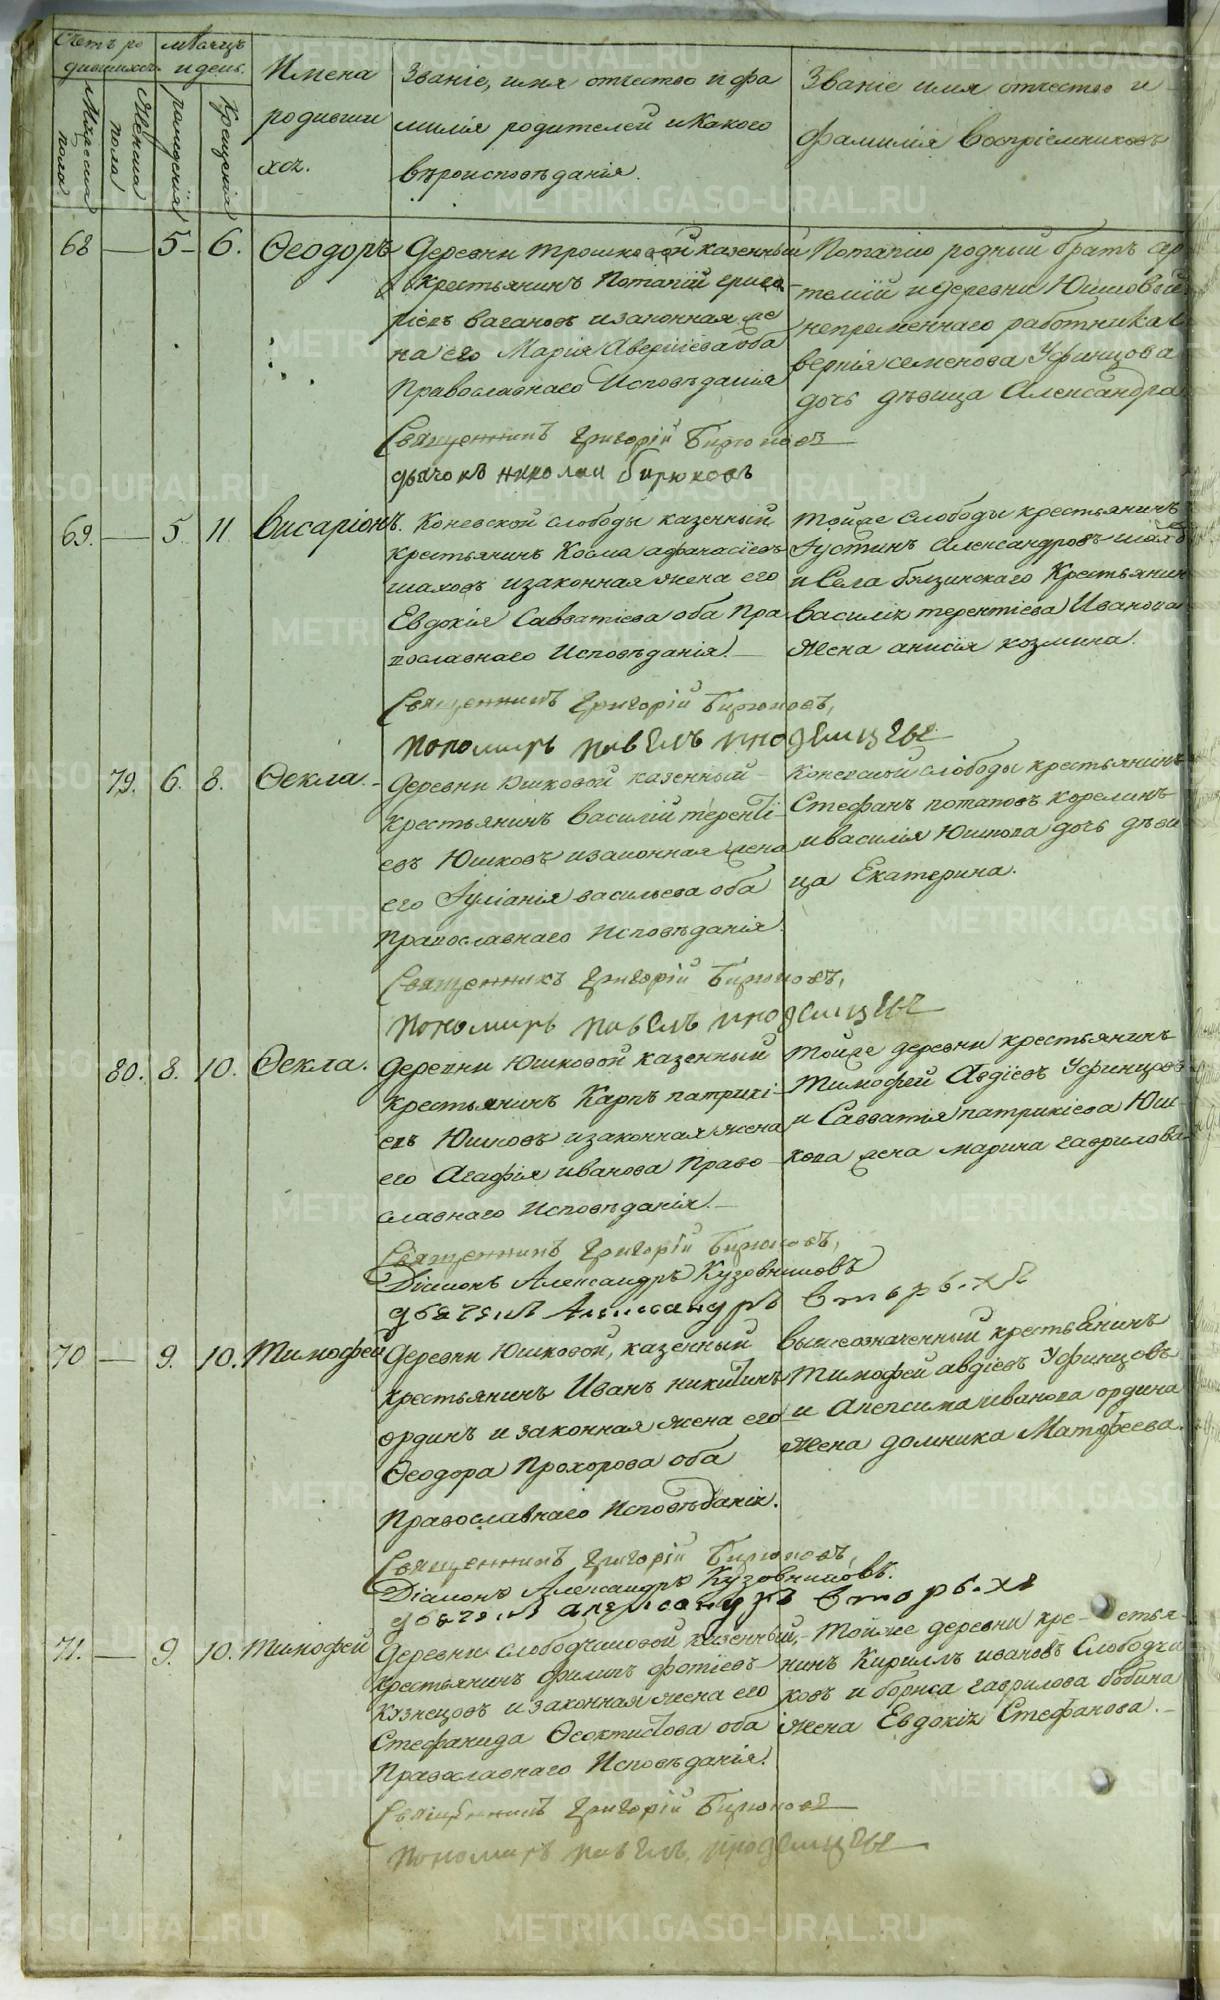 Счетъ ро
дившихсъ
мѣсяцъ
и день.
Мужеска
пола
Женска
пола
рожденія
крещенія
Имена
родивши
хсъ.
Званіе, имя отчество и фа
милія родителей и какого
вѣроисповѣданія.
Званіе имя отчество и
фамилія Воспріемниковъ
68 — 5 — 6. Ѳеодоръ
Деревни Трошковой казенный
крестьянинъ Потапій Григо-
ріевъ Вагановъ и законная же
на его Марія Аверкіева оба
Православнаго Исповѣданія
Потапію родный братъ Ар
темій и деревни Юшковый
непременнаго работника
веркія семенова Уфинцова
дочь дѣвица Александра
Священникъ Григорій Бирюковъ
дьячокъ николаи бирюковъ
69. — 5. 11. Висаріонъ.
Коневской слободы казенный
крестьянинъ Косма афанасіевъ
шаховъ и законная жена его
Евдокія Савватіева оба Пра
вославнаго Исповѣданія. —
Тойже слободы крестьянинъ
Іустинъ Александровъ шахо
и Села бызинскаго Крестьянин
василія терентіева Иванова
жена анисія козмина.
Священникъ Григорій Бирюковъ,
пономарь павелъ
79. 6. 8. Ѳекла. -
Деревни Юшковой казенный —
крестьянинъ василій теренті-
евъ Юшковъ и законная жена
его Іуліанія васильева оба
православнаго исповѣданія.
Коневской слободы крестьянинъ
Стефанъ потаповъ корелинъ
и василія Юшкова дочь дѣви
ца Екатерина.
Священникъ Григорій Бирюковъ,
пономарь павелъ
80. 8. 10. Ѳекла.
Деревни Юшковой казенный
крестьянинъ Карпъ патрикі-
евъ Юшковъ и законная жена
его Агафія иванова Право-
славнаго Исповѣданія. —
Тойже деревни крестьянинъ
Тимофей Авдіевъ Уфинцовъ
и Савватія патрикіева Юш
кова жена марина гаврилова
Священникъ Григорій Бирюковъ,
Діаконъ Александръ Кузовниковъ
Александръ вторыхъ
70 — 9. 10. Тимофей
Деревни Юшковой, казенный
крестьянинъ Иванъ никитинъ
ординъ и законная жена его
Ѳеодора Прохорова оба
Православнаго Исповѣданія.
вышеозначенный крестьянинъ
Тимофей авдіевъ Уфинцовъ
и Алексима иванова ордина
жена домника Матфеева.
Священникъ Григорій Бирюковъ,
Діаконъ Александръ Кузовниковъ.
александръ вторыхъ
71. — 9. 10. Тимофей
Деревни слободчиковой казенный, —
крестьянинъ филипъ фотіевъ
кузнецовъ и законная жена его
Стефанида Ѳеоктистова оба
Православнаго Исповѣданія.
Тойже деревни кре- стья-
нинъ Кириллъ ивановъ Слободчи
ковъ и бориса гаврилова бобина
жена Евдокія Стефанова. —
Священникъ Григорій Бирюковъ
пономарь павелъ
METRIKI.GASO-URAL.RU